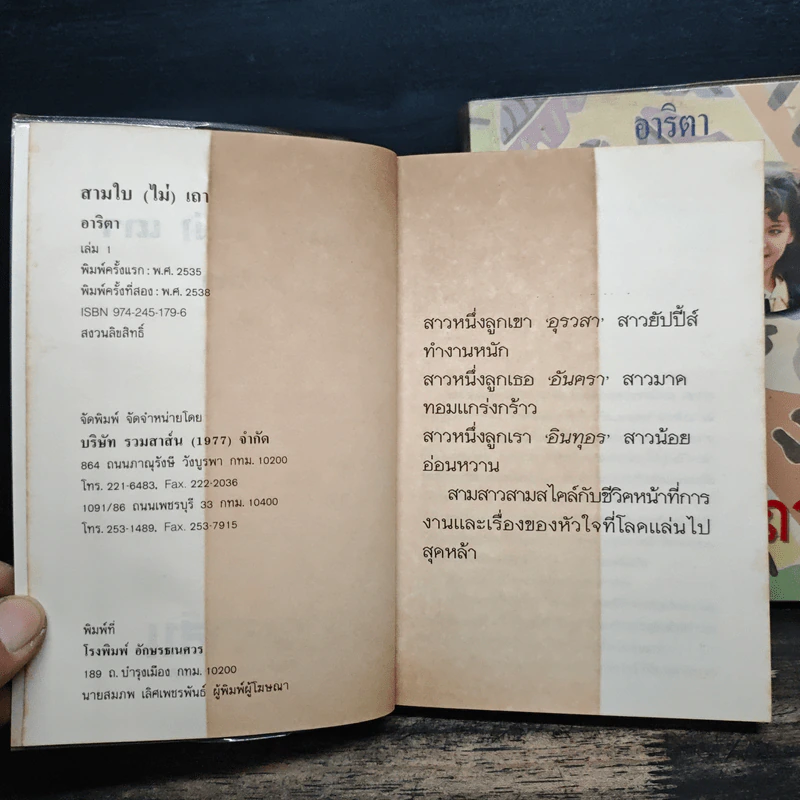 สามใบ (ไม่) เถา
อาริตา
เล่ม 1
พิมพ์ครั้งแรก : พ.ศ. 2535
พิมพ์ครั้งที่สอง : พ.ศ. 2538
ISBN 974-245-179-6
สงวนลิขสิทธิ์
จัดพิมพ์ จัดจำหน่ายโดย
บริษัท รวมสาส์น (1977) จำกัด
864 ถนนภาณุรังษี วังบูรพา กทม. 10200
โทร. 221-6483, Fax. 222-2036
1091/86 ถนนเพชรบุรี 33 กทม. 10400
โทร. 253-1489, Fax. 253-7915
พิมพ์ที่
โรงพิมพ์ อักษรธเนศวร
189 ถ. บำรุงเมือง กทม. 10200
นายสมภพ เลิศเพชรพันธ์ ผู้พิมพ์ผู้โฆษณา
สาวหนึ่งลูกเขา 'อุรวสา' สาวยัปปี้ส์
ทำงานหนัก
สาวหนึ่งลูกเธอ 'อันครา' สาวมาด
ทอมแกร่งกร้าว
สาวหนึ่งลูกเรา 'อินทุอร' สาวน้อย
อ่อนหวาน
สามสาวสามสไตล์กับชีวิตหน้าที่การ
งานและเรื่องของหัวใจที่โลดแล่นไป
สุดหล้า
อาริตา